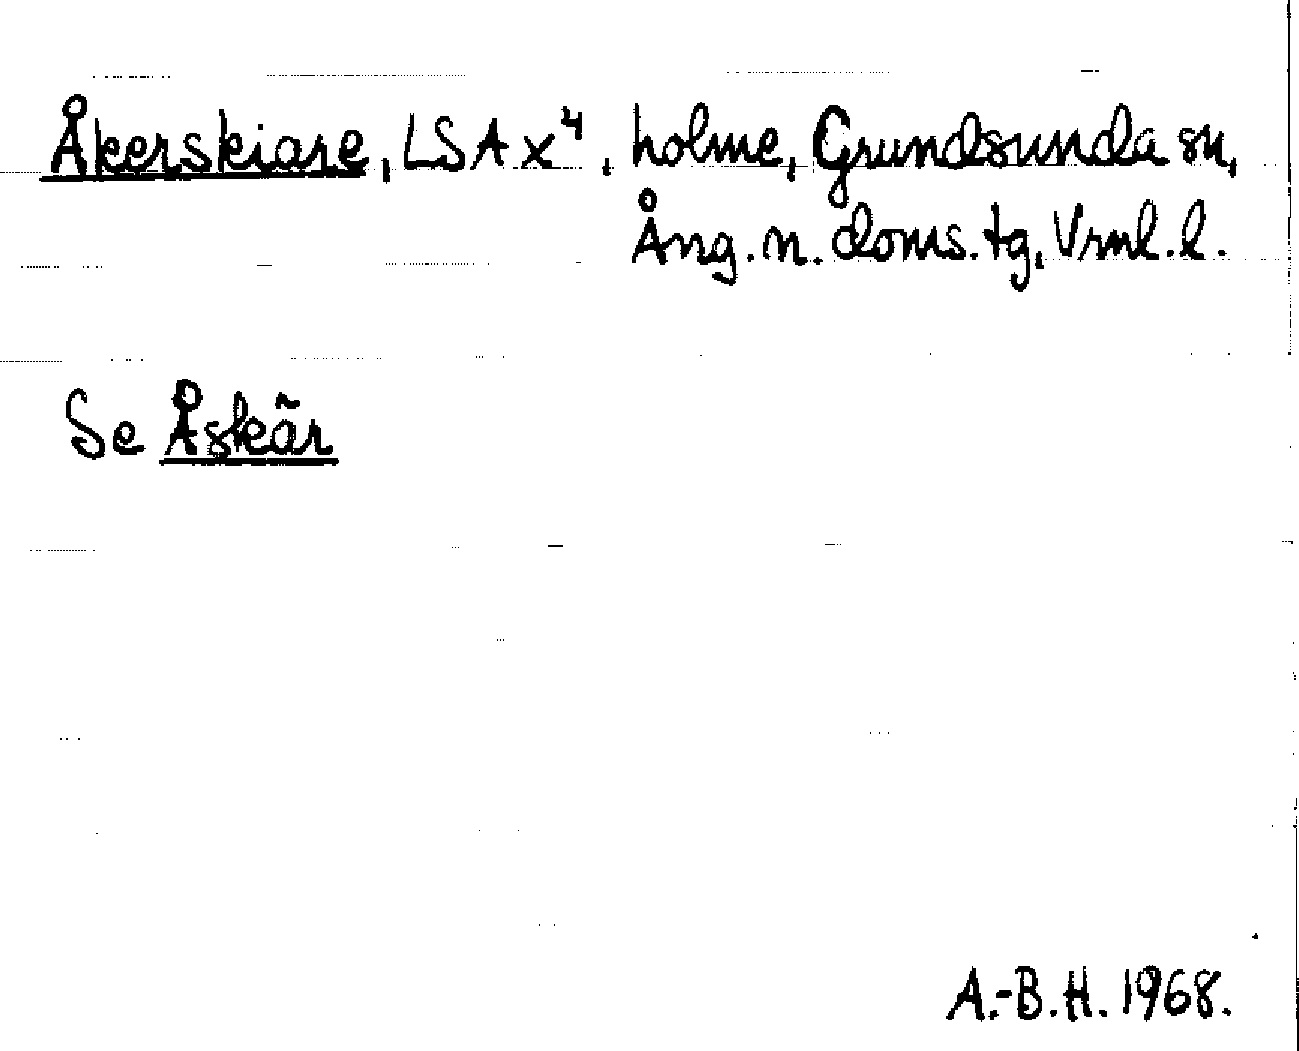 Åkerskiare, LSA x⁴, holme, Grundsunda sn,
Ång. n. doms. tg, Vrnl. l.
Se Åskär
A.-B.H. 1968.